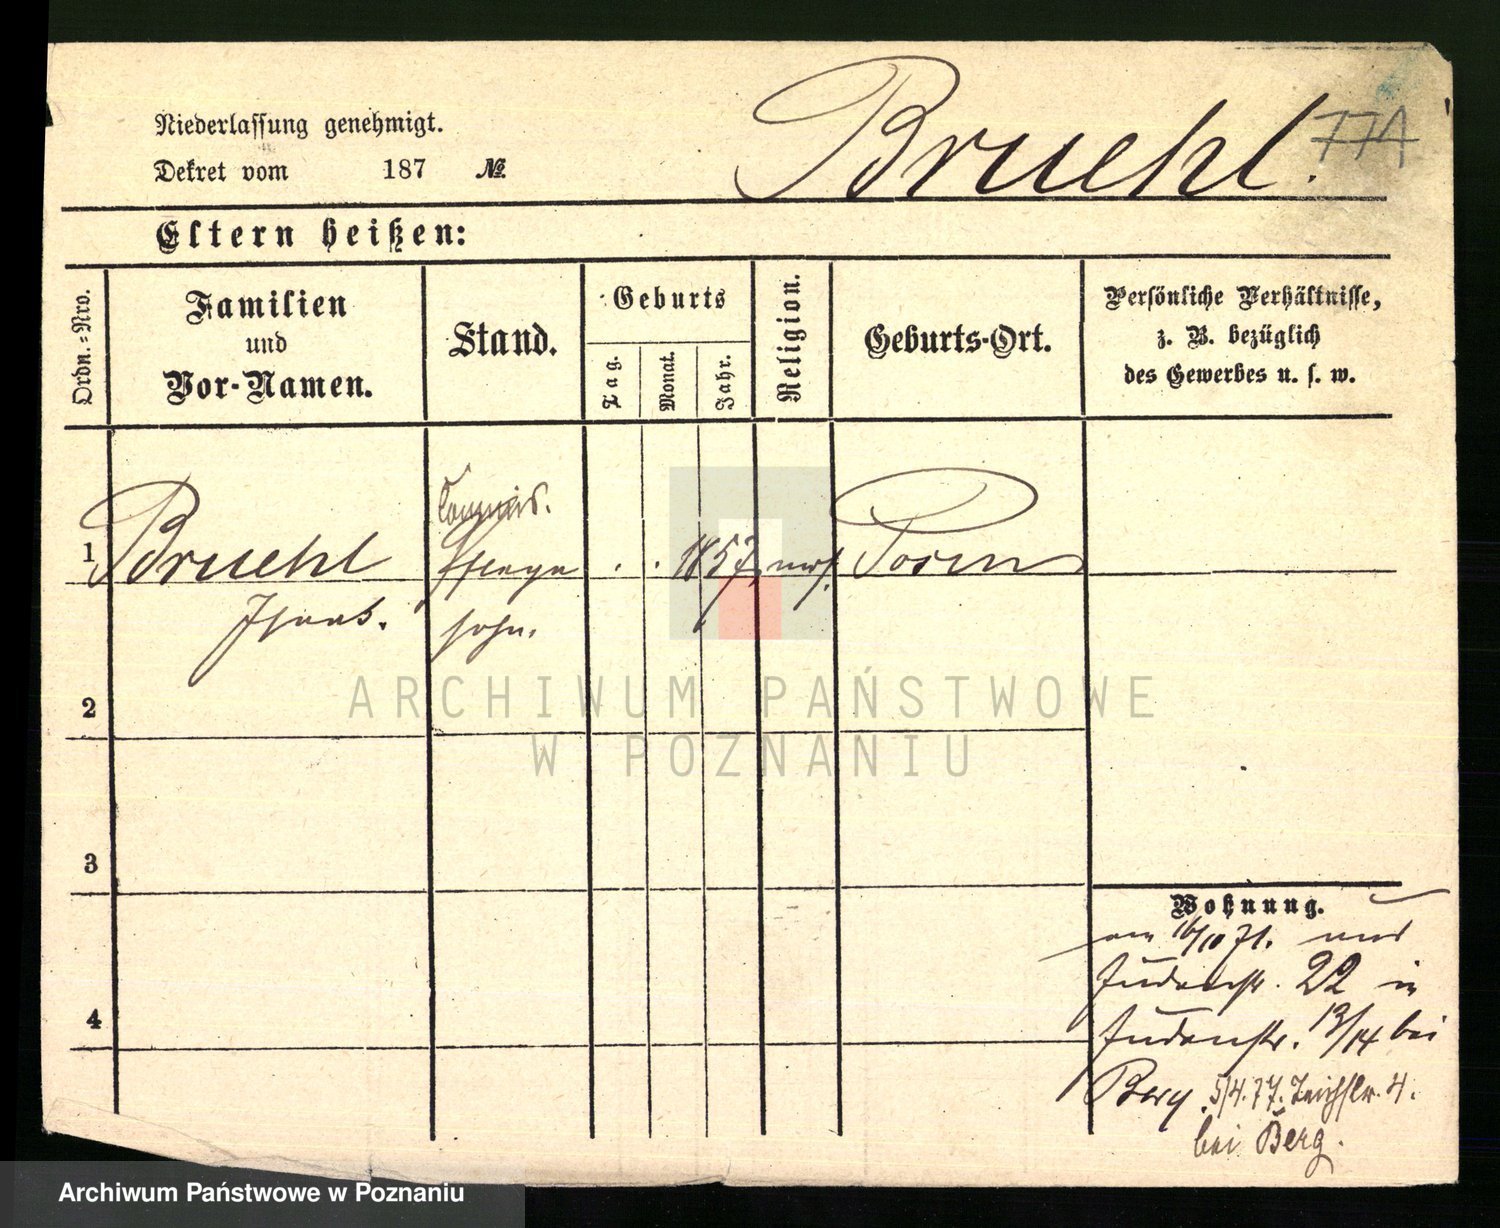 Niederlassung genehmigt.
Dekret vom 187 №
Bruehl. 774
Eltern heißen:
Ordn.-Nro.
Familien
und
Vor-Namen.
Stand.
Geburts
Tag.
Monat.
Jahr.
Religion.
Geburts-Ort.
Persönliche Verhältnisse,
z. B. bezüglich
des Gewerbes u. s. w.
Commis.
1 Bruehl Pflege . . 1857. mos. Posen
Isaak. sohn.
2
3
4
Wohnung.
am 16/10 71. aus
Judenstr. 22 in
Judenstr. 13/14 bei
Berg. 5/4.77. Teichstr. 4.
bei Berg.
ARCHIWUM PAŃSTWOWE
W POZNANIU
Archiwum Państwowe w Poznaniu